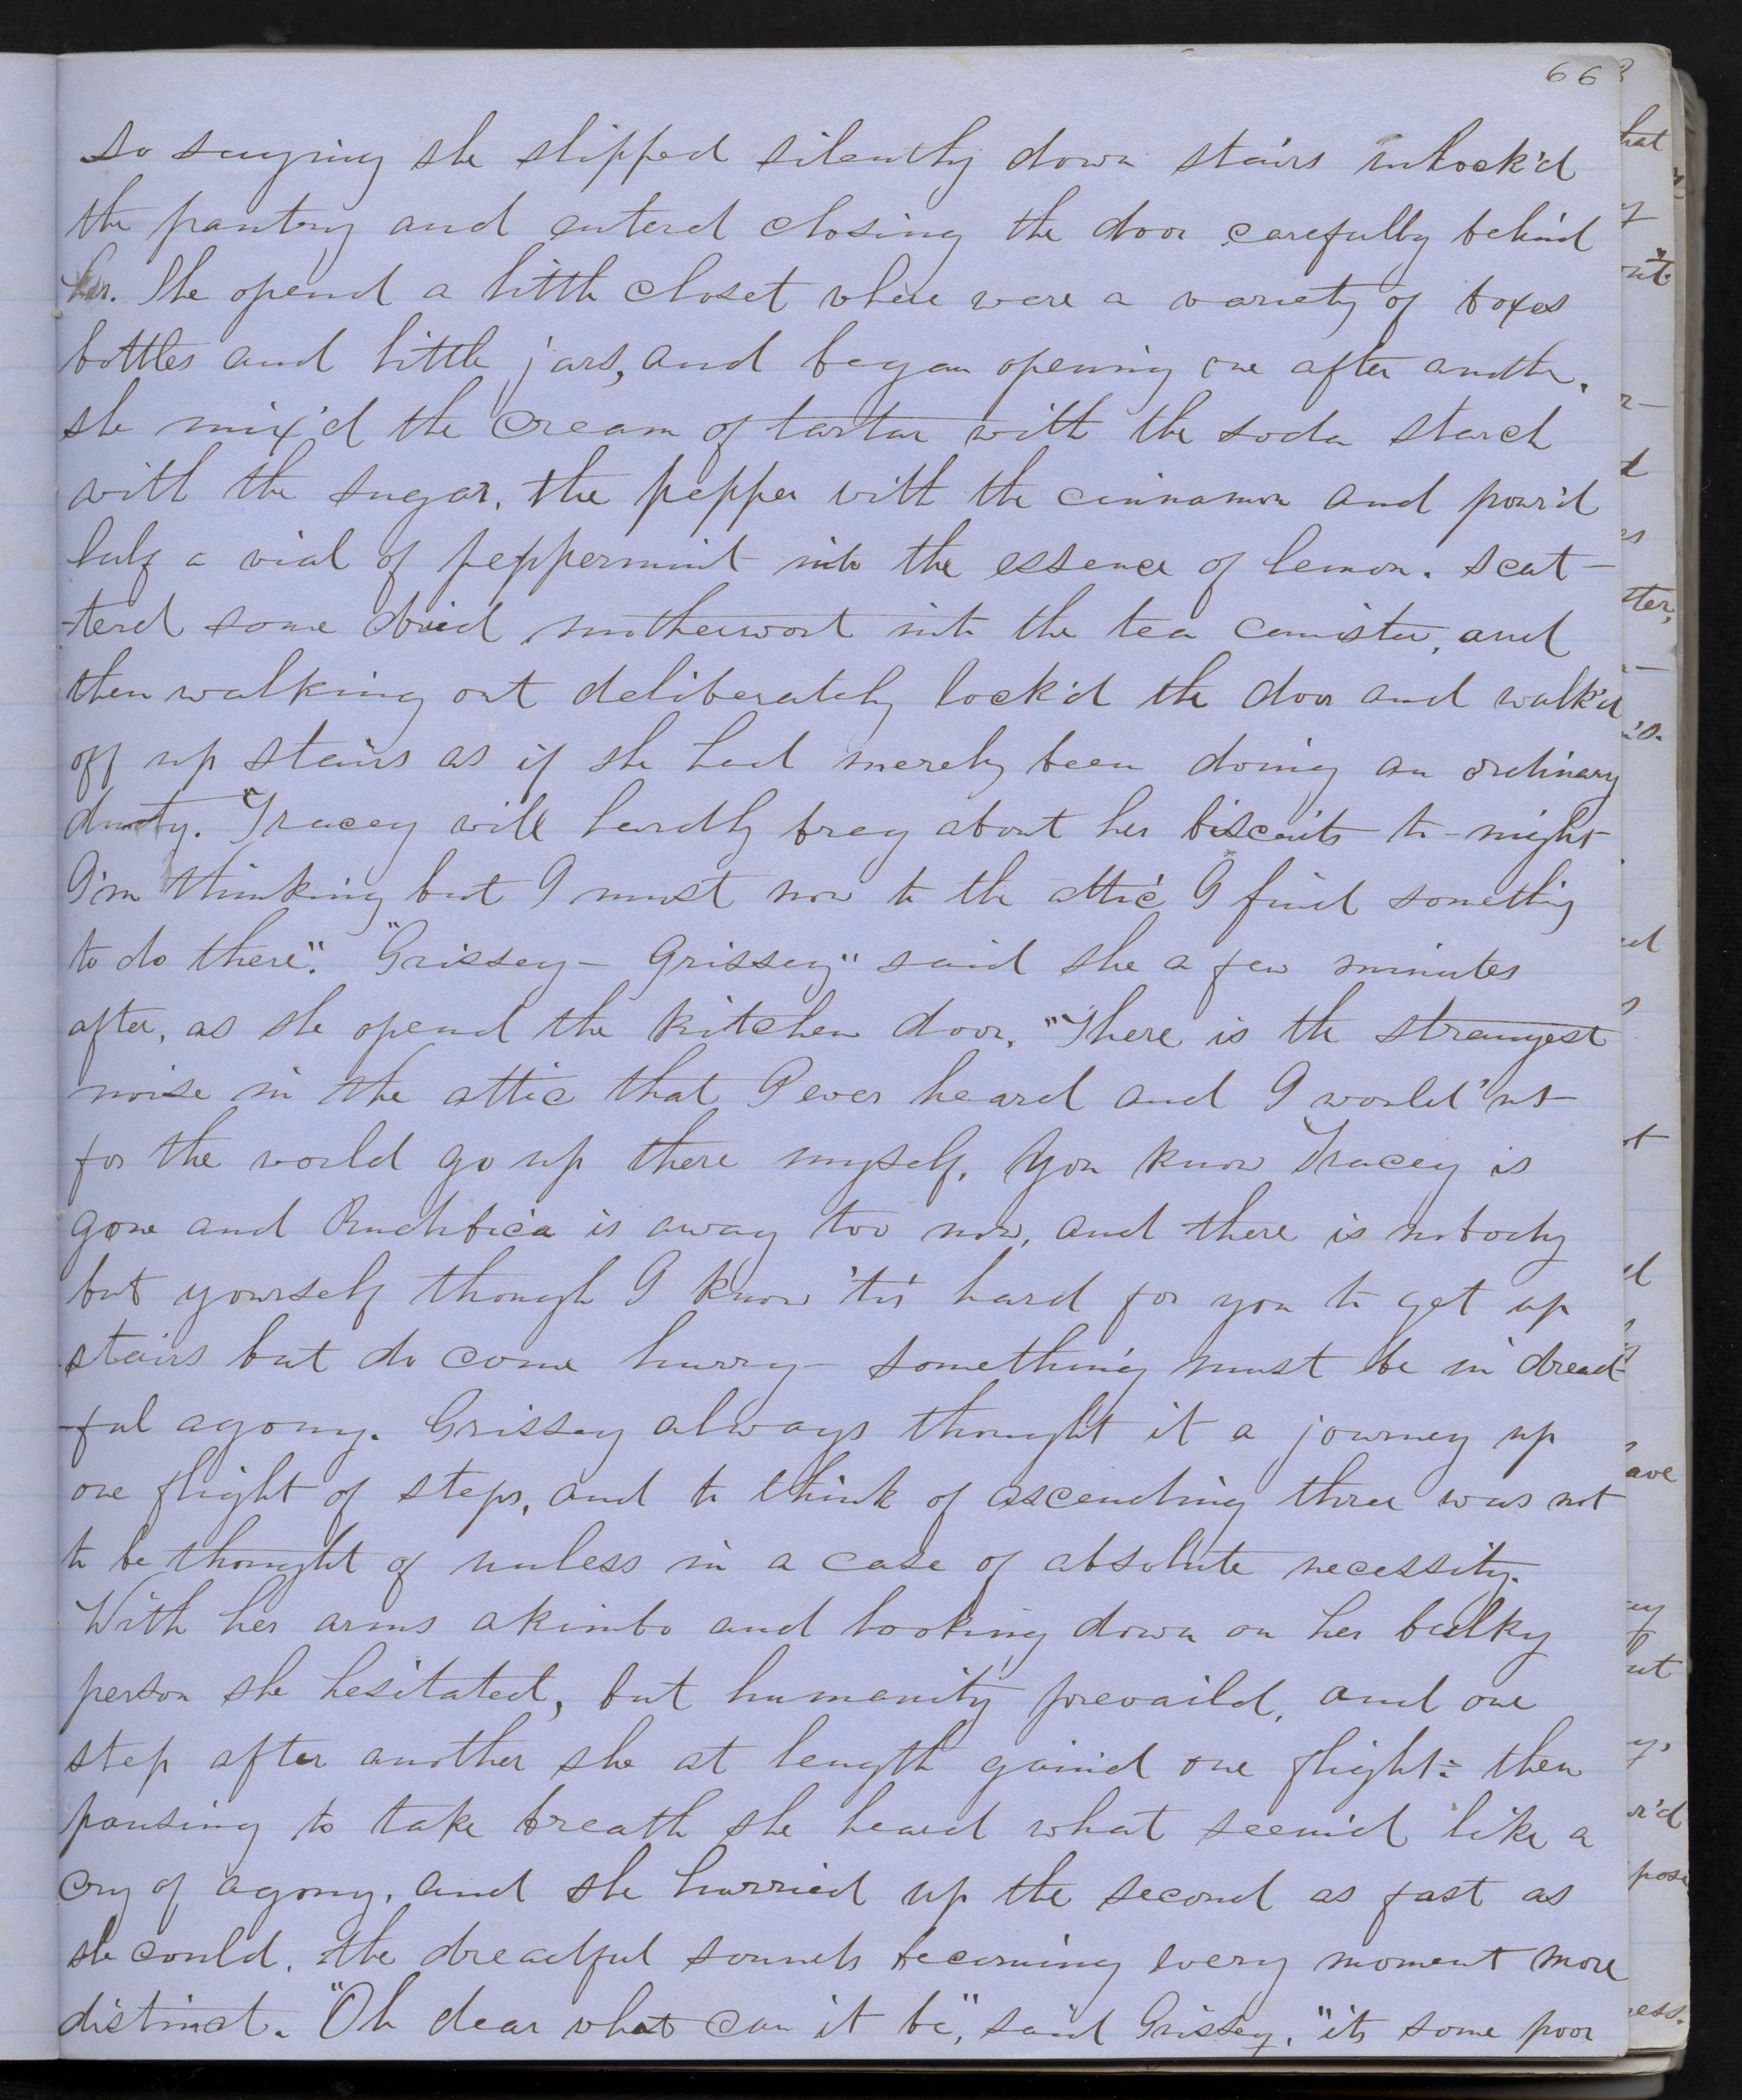 66
So saying she slipped silently down stairs unlock'd
the pantry and enterd closing the door carefully behind
her. She opend a little closet where were a variety of boxes
bottles and little jars, and began opening one after another.
she mix'd the cream of tartar with the soda starch
with the sugar, the pepper with the cinnamon and pour'd
half a vial of peppermint into the essence of lemon. scat-
-terd some dried motherwort into the tea canister, and
then walking out deliberately lock'd the door and walk'd
off up stairs as if she had merely been doing an ordinary
duty. "Tracey will hardly brag about her biscuits to-night
I'm thinking but I must now to the attic I find something
to do there". "Grissey - Grissey" said she a few minutes
after, as she opend the kitchen door, "There is the strangest
noise in the attic that I ever heard and I would'nt
for the world go up there myself. You know Tracey is
gone and is away too now, and there is nobody
but yourself though I know 'tis hard for you to get up
stairs but do come hurry - something must be in dread-
-ful agony. Grissey always thought it a journey up
one flight of steps, and to think of ascending three was not
to be thought of unless in a case of absolute necessity.
With her arms akimbo and looking down on her bulky
person she hesitated, but humanity prevaild, and one
step after another she at length gain'd one flight: then
pausing to take breath she heard what seem'd like a
cry of agony, and she hurried up the second as fast as
she could, the dreadful sounds becoming every moment more
distinct. "Oh dear what can it be", said Grissey, "its some poor